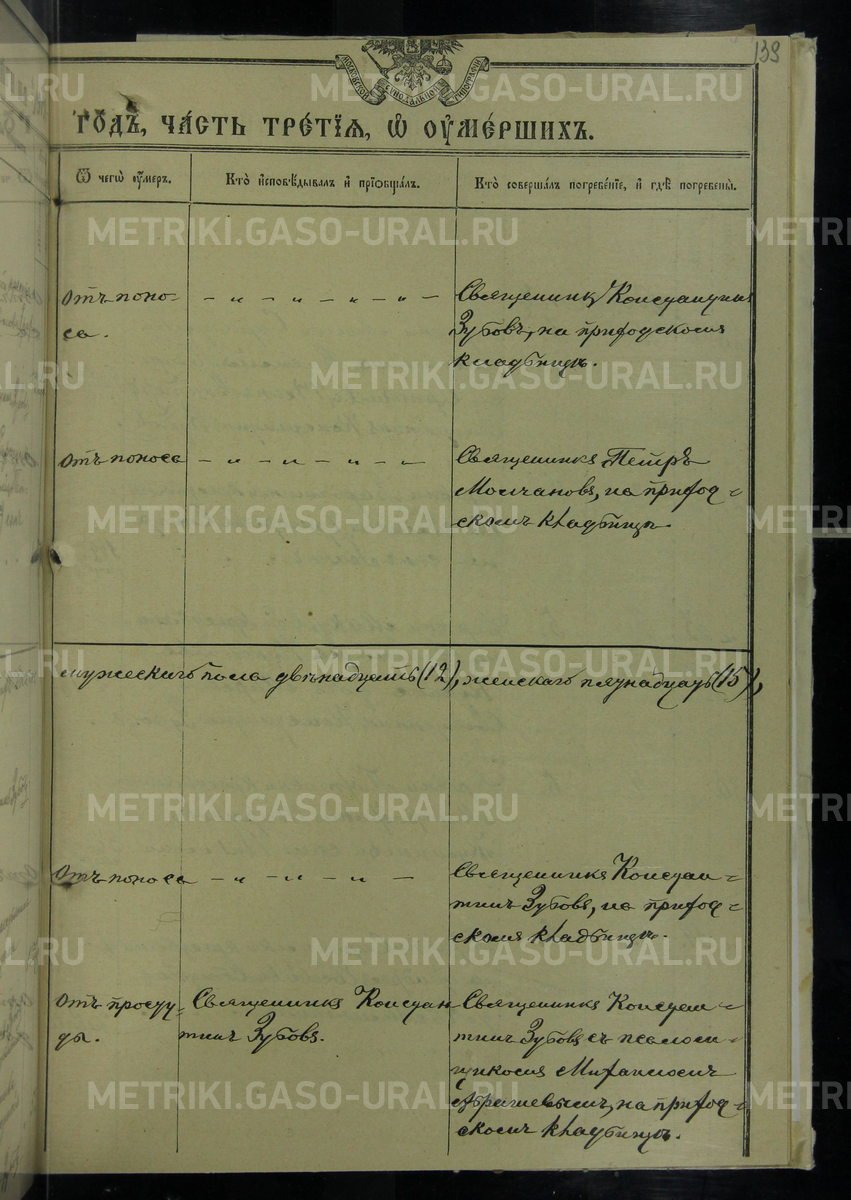 139
МОСКОВСКОЙ СѴНОДАЛЬНОЙ ТИПОГРАФІИ
Го́дъ, ча́сть тре́тїѧ, ѡ҆ ᲂу҆ме́ршихъ.
Ѿ чегѡ̀ ᲂу҆́меръ.
Кто̀ и҆сповѣ́дывалъ и҆ прїѡбща́лъ.
Кто̀ соверша́лъ погребе́нїе, и҆ гдѣ̀ погребены̀.
Отъ поно-
са.
– „ – „ – „ – „ –
Священникъ Константинъ
Зубовъ, на приходскомъ
кладбищѣ.
Отъ поноса
– „ – „ – „ –
Священникъ Петръ
Молчановъ, на приход=
скомъ кладбищѣ.
мужескаго пола двѣнадцать (12), женскаго пятнадцать (15),
Отъ поноса
– „ – „ – „ –
Священникъ Констан=
тинъ Зубовъ, на приход=
скомъ кладбищѣ.
Отъ просту=
ды.
Священникъ Констан
тинъ Зубовъ.
Священникъ Констан=
тинъ Зубовъ съ псалом=
щикомъ
на приход=
скомъ кладбищѣ.
METRIKI.GASO-URAL.RU